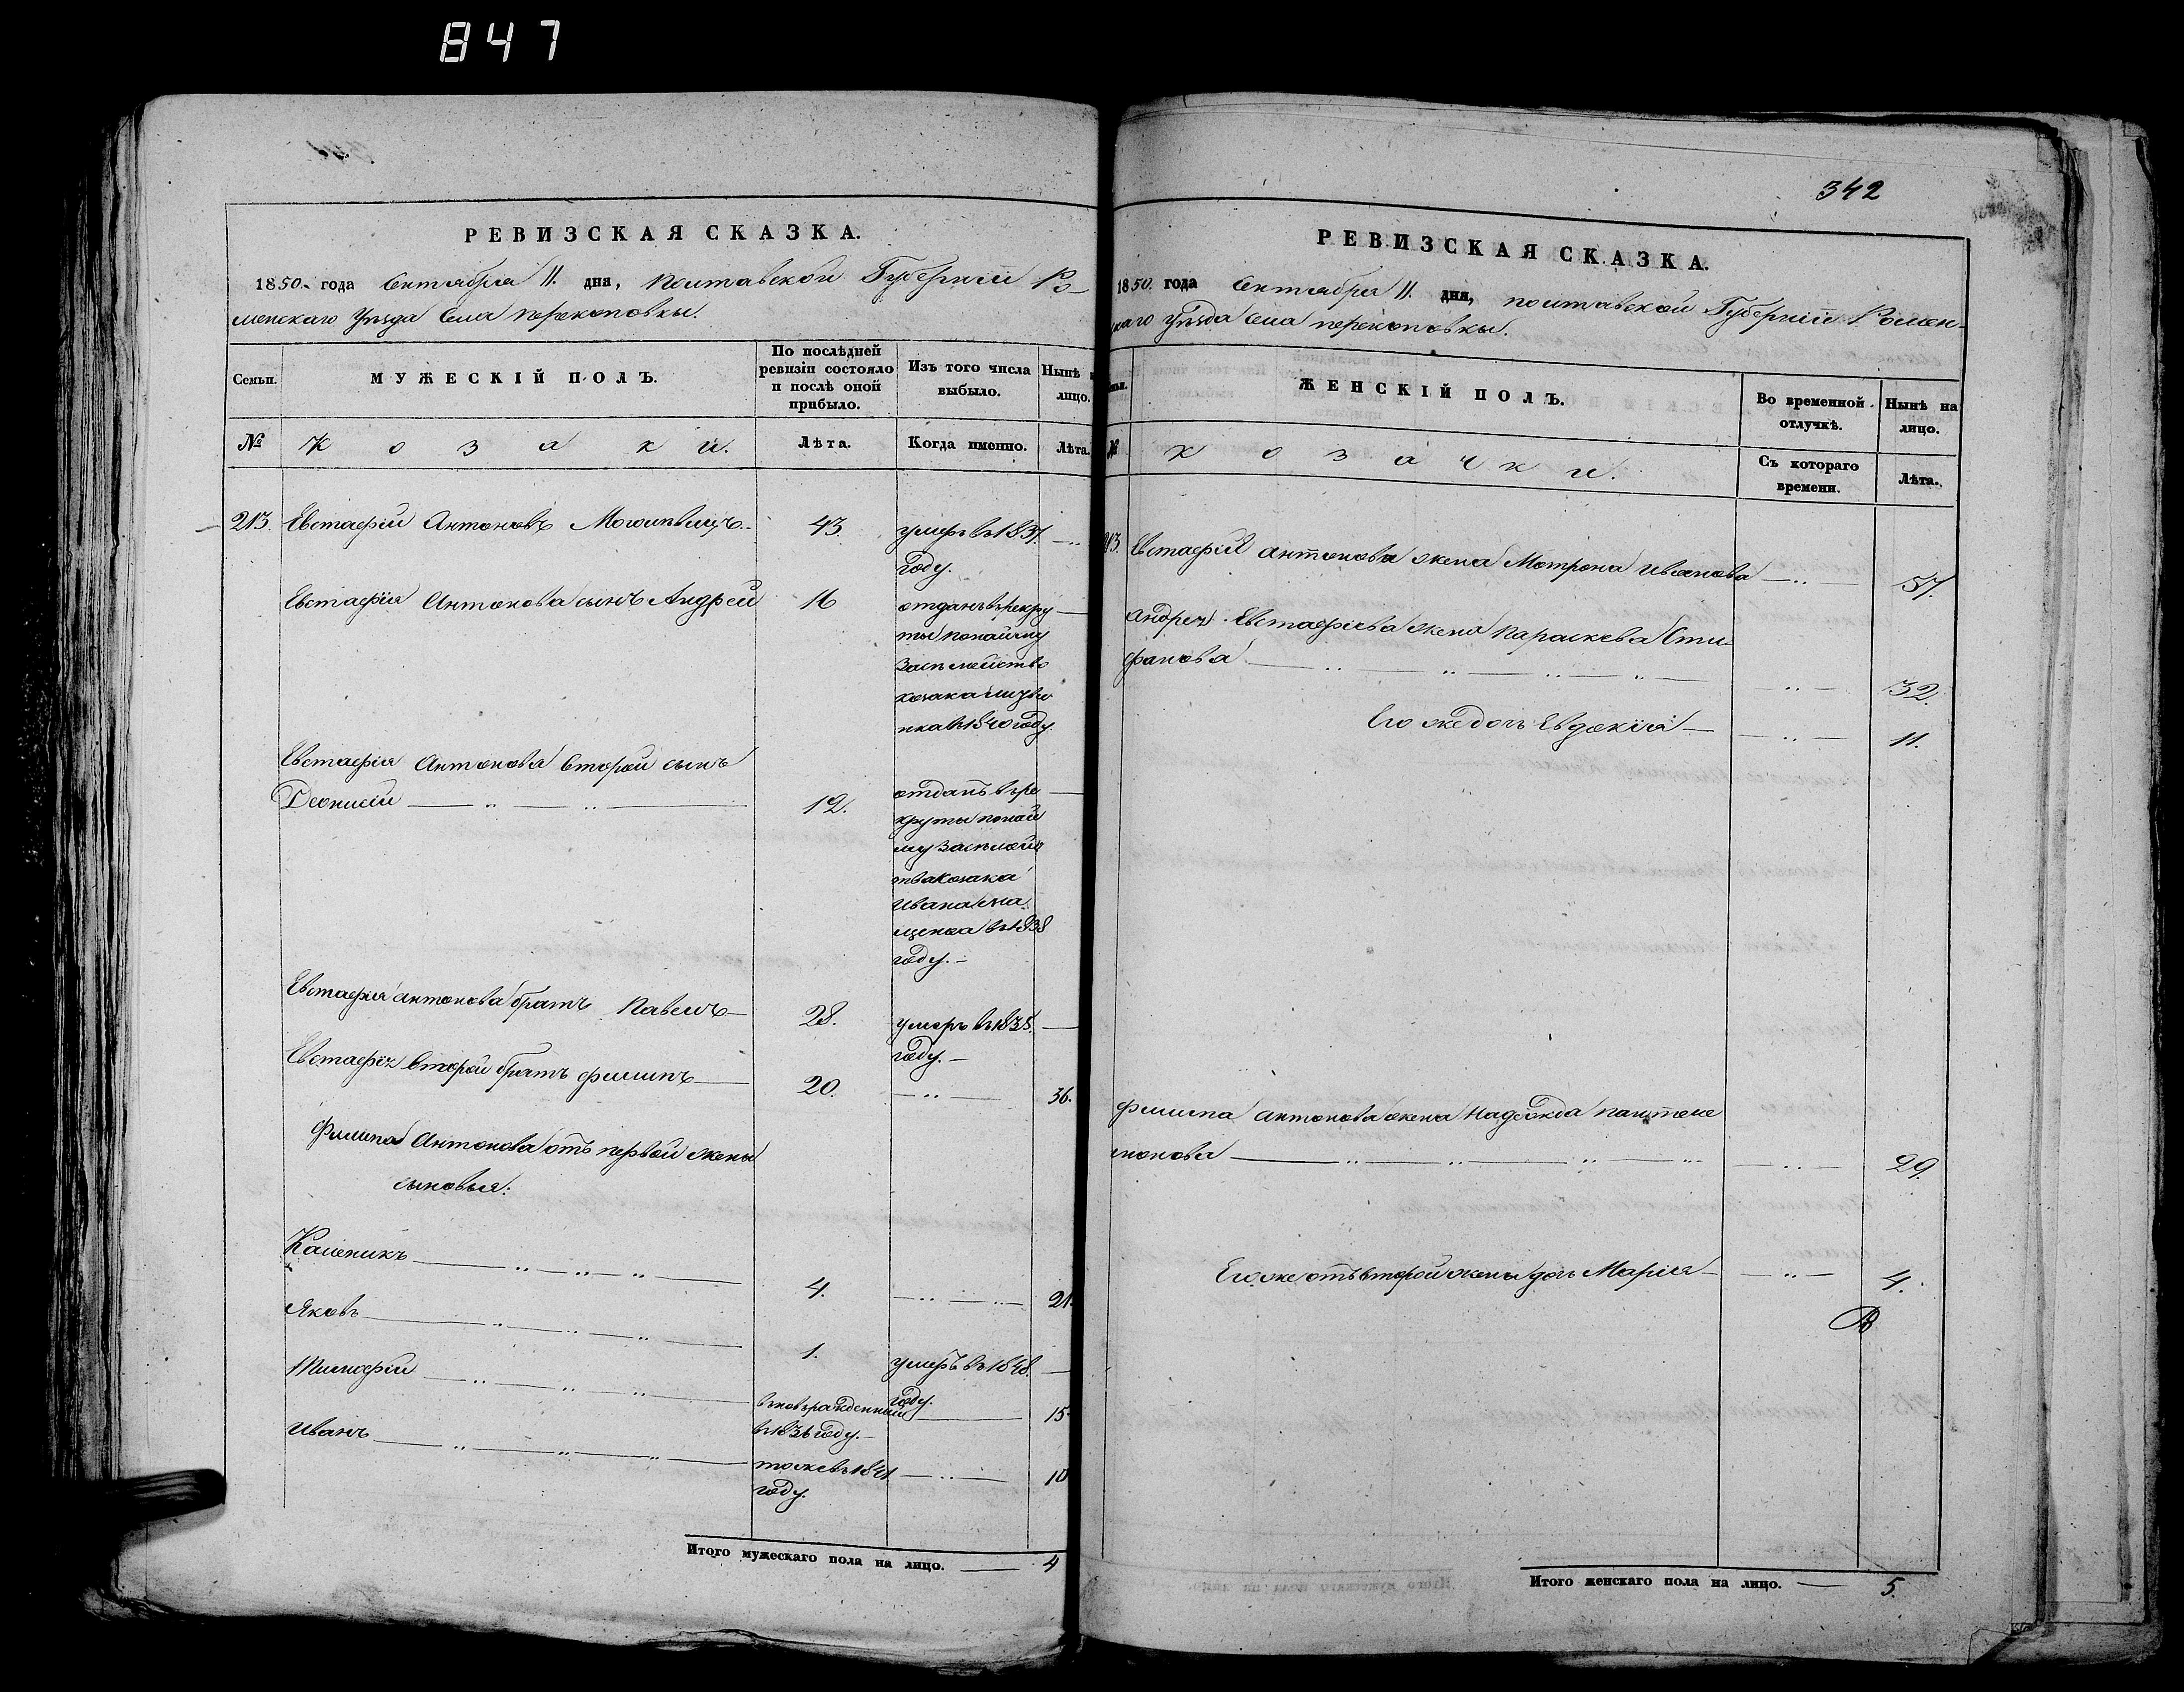 847
РЕВИЗСКАЯ СКАЗКА.
1850. года Сентября 11. дня, Полтавской Губерніи Ро-
менскаго Уѣзда Села Перекоповки.
Семьи.
МУЖЕСКІЙ ПОЛЪ.
По послѣдней
ревизіи состояло
и послѣ оной
прибыло.
Изъ того числа
выбыло.
Нынѣ н
лицо.
№
Козаки.
Лѣта.
Когда именно.
Лѣта.
213. Евстафій Антоновъ 43. умеръ въ 1837.
году.
Евстафія Антонова сынъ Андрей 16 отданъ въ рекру
ты по найму
за семейство
козака
въ 1840 году.
Евстафія Антонова второй сынъ
Деонисій 12. отданъ въ ре
круты по най
му за семейс
тва козака
Ивана
щенка въ 1838
году.
Евстафія Антонова братъ Павелъ 28. умеръ въ 1835.
году.
Евстафія второй братъ Филипъ 20. 36.
Филипа Антонова отъ первой жены
сыновья:
Каленикъ 4. 21.
Яковъ 1. умеръ въ 1848.
году.
Тимофій вновьрожденный 15
въ 1836 году.
Иванъ тоже въ 1841 10
году.
Итого мужескаго пола на лицо. 4
342
РЕВИЗСКАЯ СКАЗКА.
1850. года Сентября 11. дня, Полтавской Губерніи Ромен-
скаго Уѣзда Села Перекоповки.
ЖЕНСКІЙ ПОЛЪ.
Во временной
отлучкѣ.
Нынѣ на
лицо.
№
Козачки.
Съ котораго
времени.
Лѣта.
213. Евстафія Антонова жена Мотрона Иванова 57.
Андрея Евстафіева жена Параскева Сти
фанова 32.
Его же дочь Евдокія 11.
Филипа Антонова жена Надежда Пантеле
имонова 29.
Его же отъ второй жены дочь Марія 4.
Итого женскаго пола на лицо. 5.